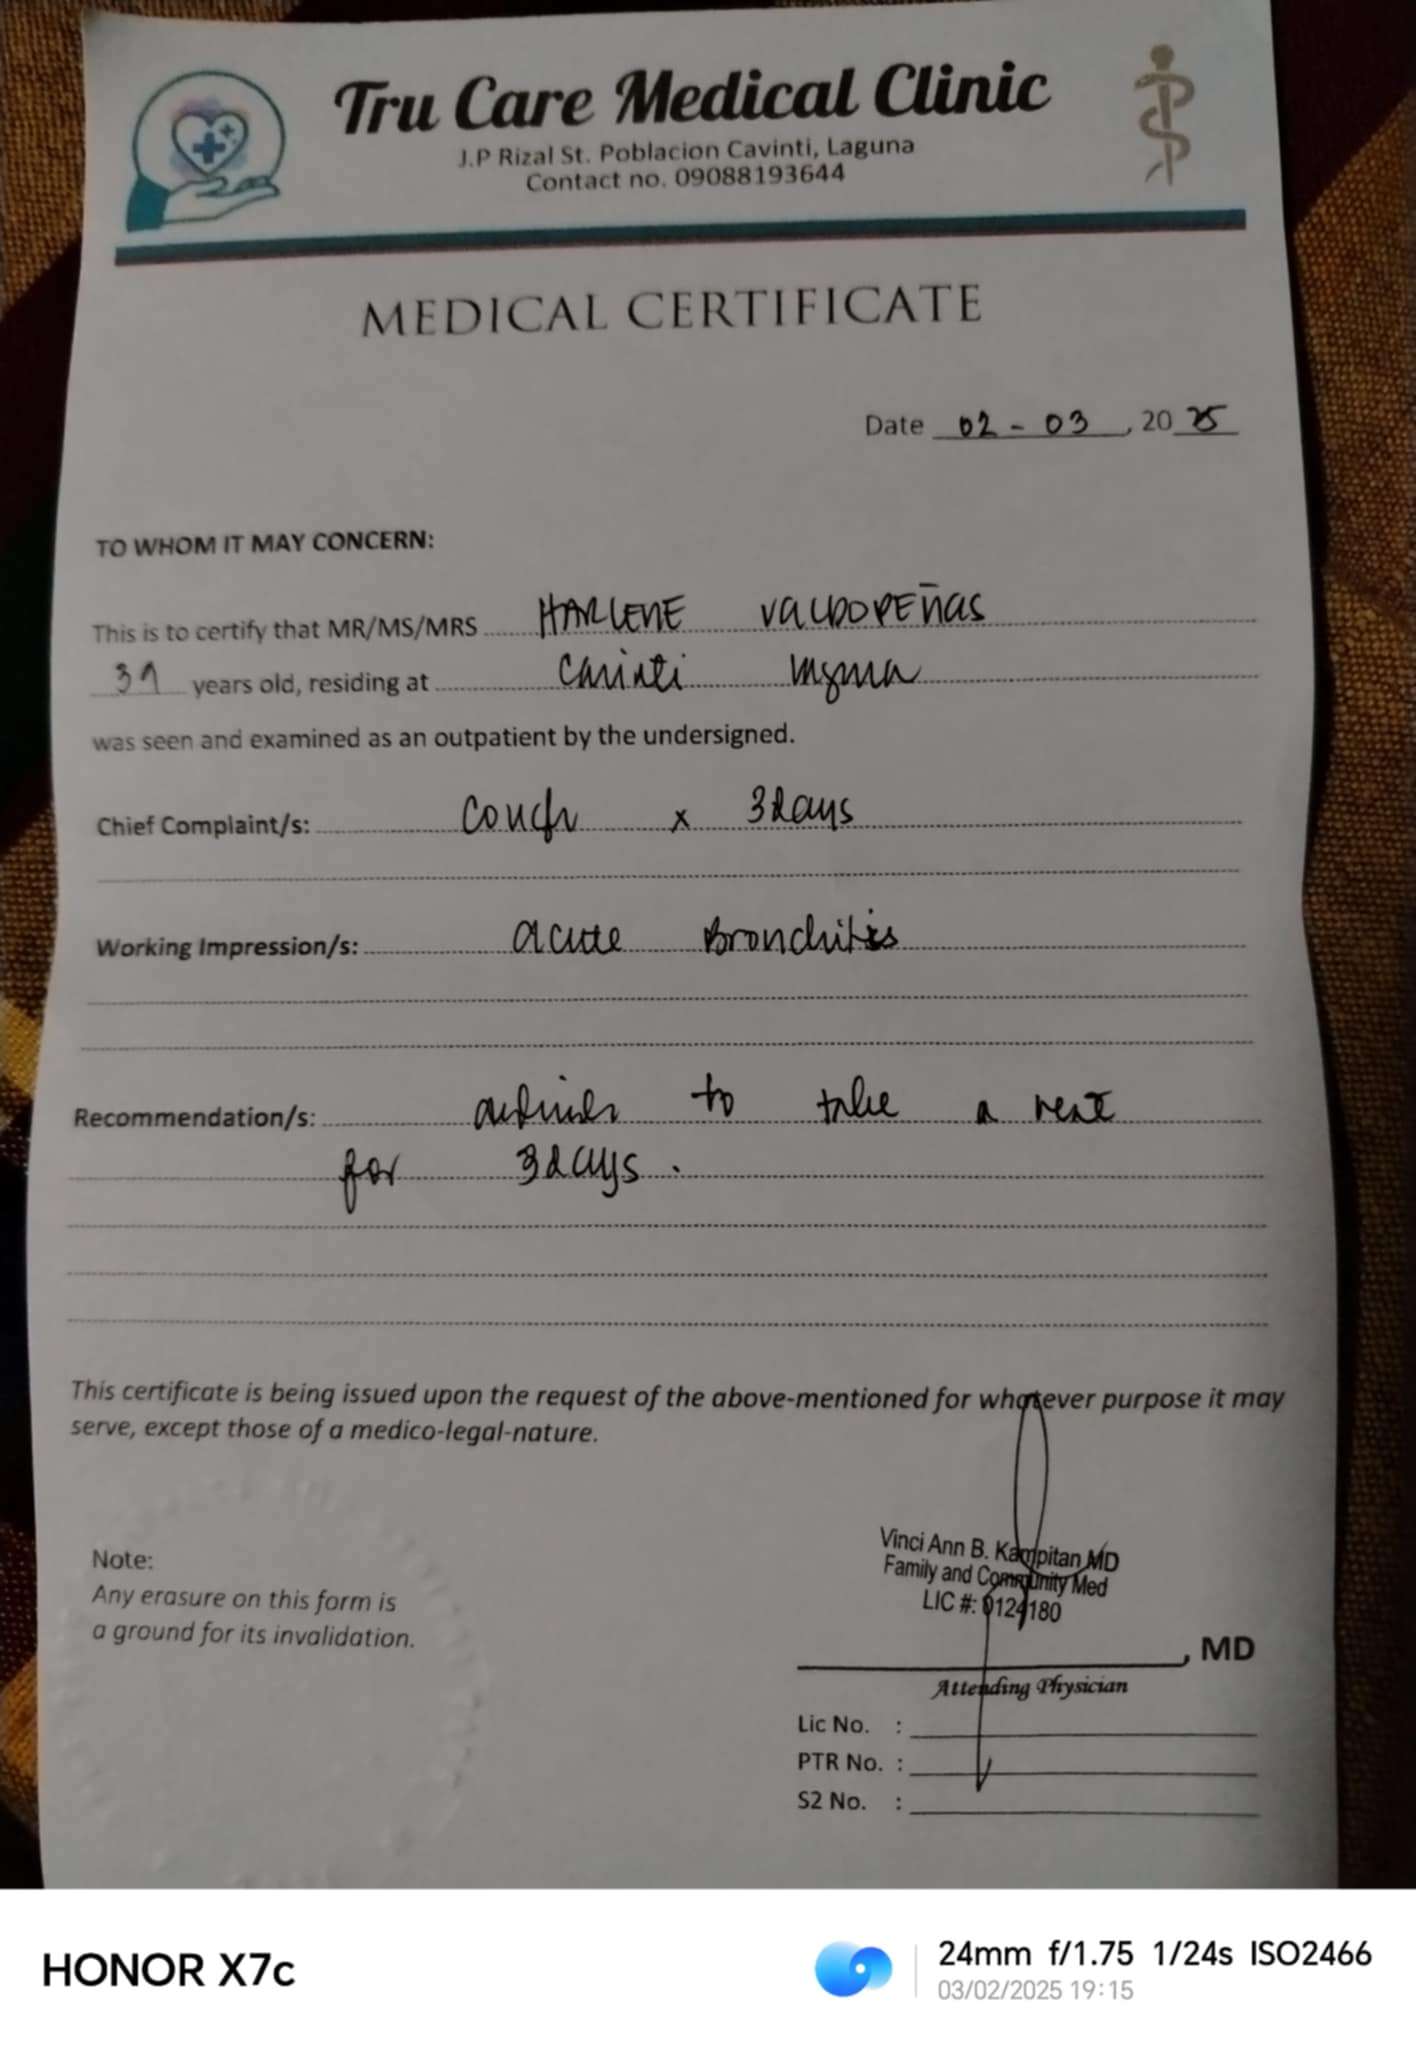 Tru Care Medical Clinic
J.P Rizal St. Poblacion Cavinti, Laguna
Contact no. 09088193644
MEDICAL CERTIFICATE
Date 02 - 03, 2025
TO WHOM IT MAY CONCERN:
This is to certify that MR/MS/MRS HARLENE VALDOPEÑAS
years old, residing at Cavinti
was seen and examined as an outpatient by the undersigned.
Chief Complaint/s: cough x 3days
Working Impression/s: acute Bronchitis
Recommendation/s: to take a rest
for 3days.
This certificate is being issued upon the request of the above-mentioned for whatever purpose it may
serve, except those of a medico-legal-nature.
Note:
Any erasure on this form is
a ground for its invalidation.
Vinci Ann B. Kampitan MD
Family and Community Med
LIC #: 0124180
, MD
Attending Physician
Lic No. :
PTR No. :
S2 No. :
HONOR X7c
24mm f/1.75 1/24s ISO2466
03/02/2025 19:15